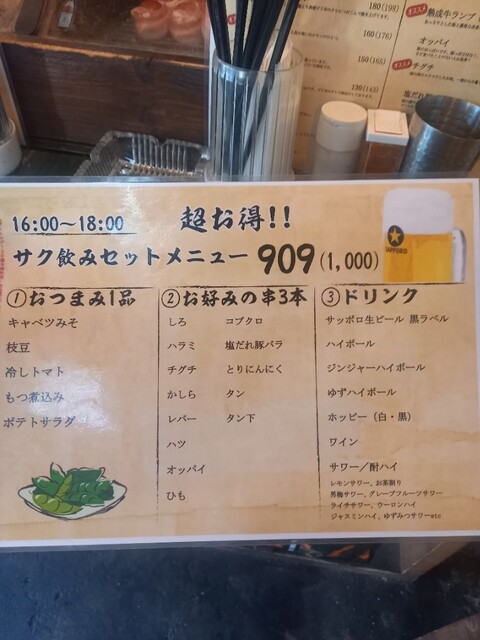 180(198)
熟成牛ランプ
160(176)
オッパイ
150(165)
チグチ
130(143)
塩だれ
16:00～18:00
超お得!!
サク飲みセットメニュー 909(1,000)
SAPPORO
①おつまみ1品
キャベツみそ
枝豆
冷しトマト
もつ煮込み
ポテトサラダ
②お好みの串3本
しろ コブクロ
ハラミ 塩だれ豚バラ
チグチ とりにんにく
かしら タン
レバー タン下
ハツ
オッパイ
ひも
③ドリンク
サッポロ生ビール 黒ラベル
ハイボール
ジンジャーハイボール
ゆずハイボール
ホッピー（白・黒）
ワイン
サワー／酎ハイ
レモンサワー、お茶割り
男梅サワー、グレープフルーツサワー
ライチサワー、ウーロンハイ
ジャスミンハイ、ゆずみつサワーetc